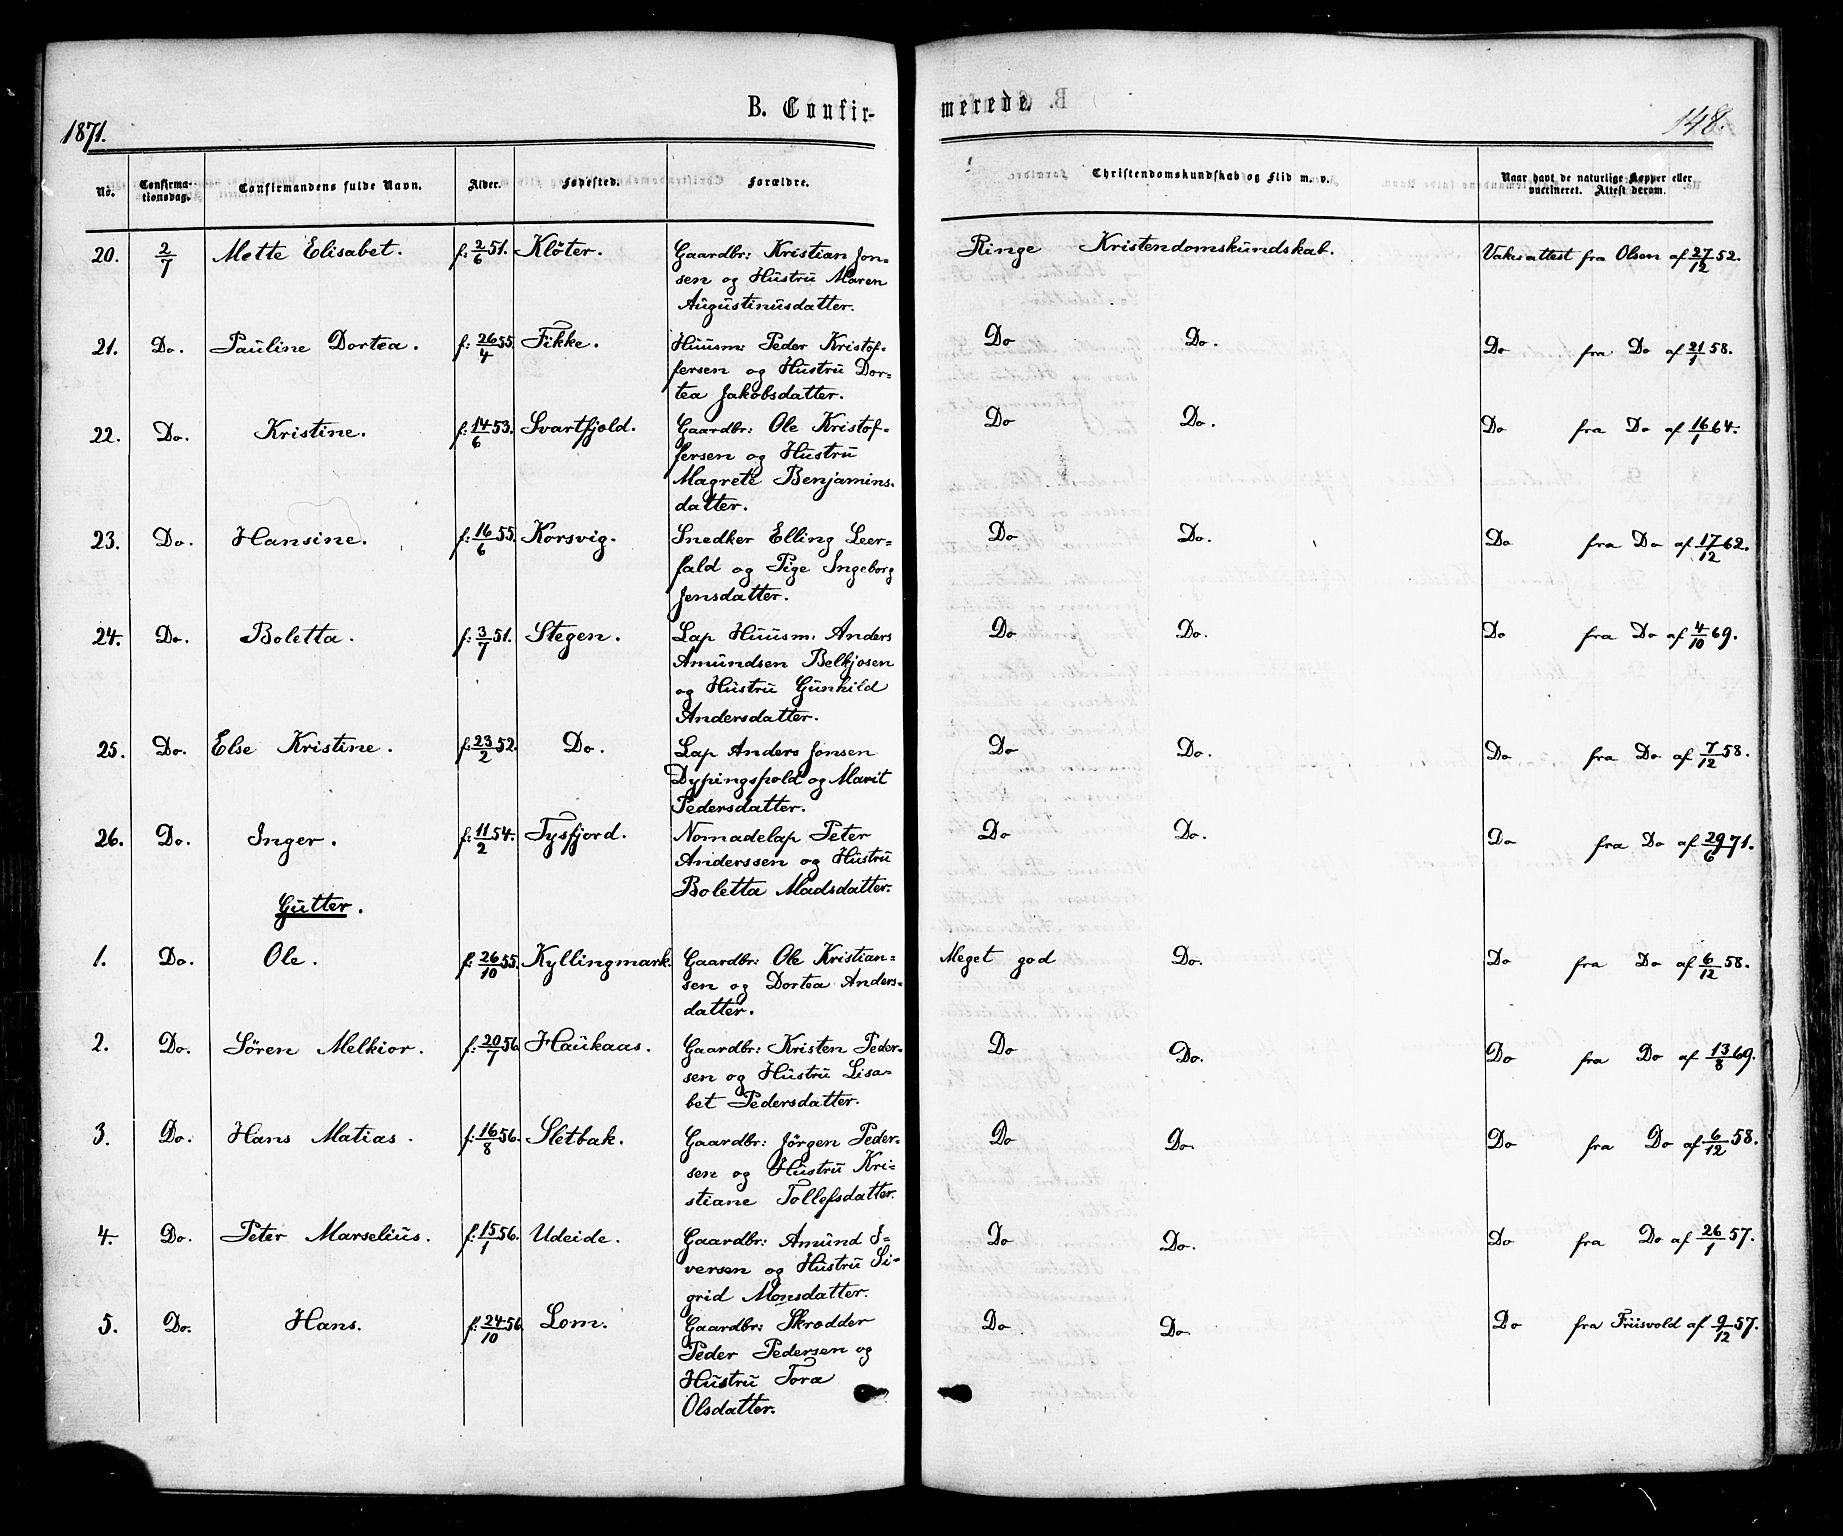 1871.
B. Confir-
merede.
148.
No.
Confirma-
tionsdag.
Confirmandens fulde Navn.
Alder.
Fødested.
Forældre.
Christendomskundskab og Flid m. v.
Naar havt de naturlige Kopper eller
vaccineret. Attest derom.
20. 2/7 Mette Elisabet. f: 2/6 51. Klöter. Gaardbr: Kristian Jon- Ringe Kristendomskundskab. Vaksattest fra Olsen af 27/12 52.
sen og Hustru Maren
Augustinusdatter.
21. Do. Pauline Dortea. f: 26/4 55. Fikke. Huusm: Peder Kristof- Do Do. Do fra Do af 21/1 58.
fersen og Hustru Dor-
tea Jakobsdatter.
22. Do. Kristine. f: 14/6 53. Svartfjold. Gaardbr: Ole Kristof- Do Do. Do fra Do af 16/1 64.
fersen og Hustru
Magrete Benjamins-
datter.
23. Do. Hansine. f: 16/6 55. Korsvig. Snedker Elling Leer- Do Do. Do fra Do af 17/12 62.
fald og Pige Ingeborg
Jensdatter.
24. Do. Boletta. f: 3/7 51. Stegen. Lap Huusm: Anders Do Do. Do fra Do af 4/10 69.
Amundsen Belkjosen
og Hustru Gunhild
Andersdatter.
25. Do. Else Kristine. f: 23/2 52. Do. Lap Anders Jonsen Do Do. Do fra Do af 7/12 58.
Dypingspold og Marit
Pedersdatter.
26. Do. Inger. f: 11/2 54. Tysfjord. Nomadelap Peter Do Do. Do fra Do af 29/6 71.
Anderssen og Hustru
Boletta Madsdatter.
Gutter.
1. Do. Ole. f: 26/10 55. Kyllingmark. Gaardbr: Ole Kristian- Meget god Do. Do fra Do af 6/12 58.
sen og Dortea Anders-
datter.
2. Do. Sören Melkior. f: 20/7 56. Haukaas. Gaardbr: Kristen Peder- Do Do. Do fra Do af 13/8 69.
sen og Hustru Lisa-
bet Pedersdatter.
3. Do. Hans Matias. f: 16/8 56. Sletbak. Gaardbr: Jörgen Peder- Do Do. Do fra Do af 6/12 58.
sen og Hustru Kri-
stiane Tollefsdatter.
4. Do. Peter Marselius. f: 15/1 56. Udeide. Gaardbr: Amund S- Do Do. Do fra Do af 26/1 57.
versen og Hustru Si-
grid Monsdatter.
5. Do. Hans. f: 24/10 56. Lom. Gaardbr: Skrædder Do. Do. Do fra Friisvold af 9/12 57.
Peder Pedersen og
Hustru Tora
Olsdatter.